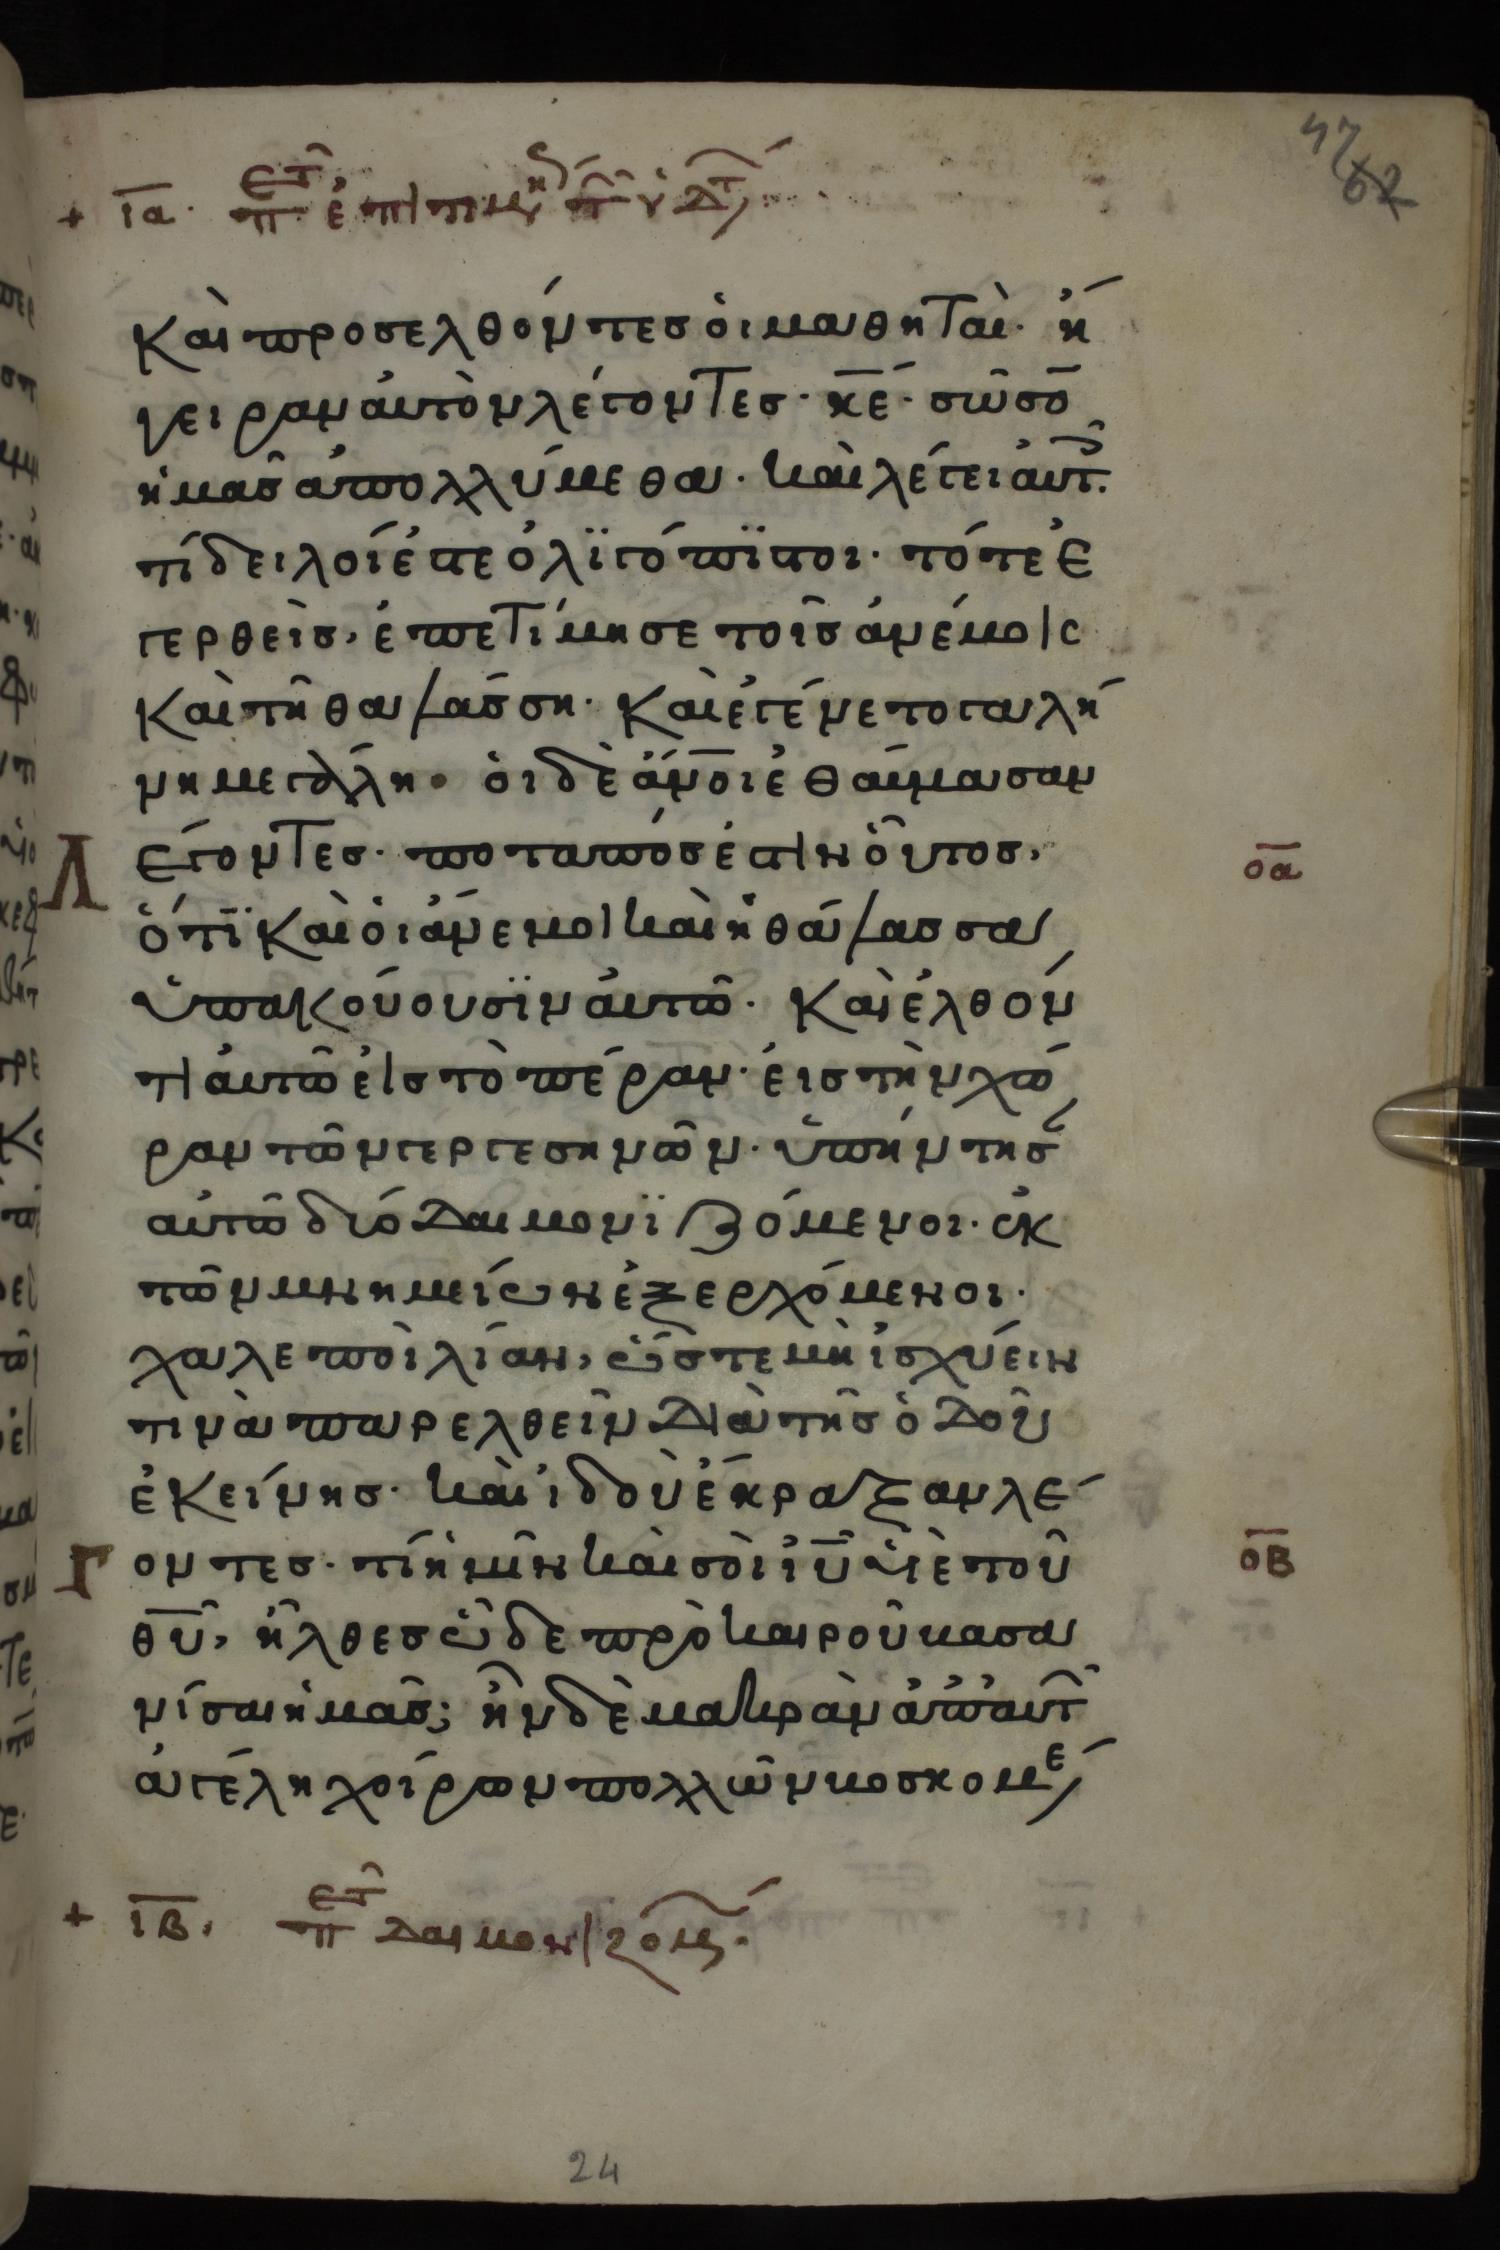 + ια. περὶ τῆς ἐπιτιμήσεως τῶν ὑδάτων
47
62
Καὶ προσελθόντες ὁι μαθηταὶ. ἤ
γειραν ἀυτὸν λέγοντες. κε̅. σῶσο̅
ἡμᾶς ἀπολλύμεθα. καὶ λέγει ἀυτ.
τί δειλοί ἐστε ὀλϊγόπϊστοι. τότε ἐ
γερθεὶς, ἐπετίμησε τοῖς ἀνέμοις
Καὶ τῆ θαλάσση. Καὶ ἐγένετο γαλή
νη μεγάλη. ὁι δὲ ἄν̅οι ἐθαύμασαν
Λ
έγοντες. ποταπός ἐστιν οὗτος,
ο̅α̅
ὅτϊ Καὶ ὁι ἄνεμοι καὶ ἡ θάλασσα
ὑπακούουσϊν ἀυτῶ. Καὶ ἐλθόν
τι ἀυτῶ ἐις τὸ πέραν. ἐις τὴν χώ
ραν τῶν γεργεσηνῶν. ὑπήντησ
αὐτῶ δύο δαιμονϊζόμενοι. ἐκ
τῶν μνημείων ἐξερχόμενοι.
χαλεποὶ λίαν, ὥστε μὴ ἰσχύειν
τινὰ παρελθεῖν διὰ τῆς ὁδοῦ
ἐκείνης. καὶ ἰδοὺ ἔκραξαν λέ
Γ
οντες. τί ἡμῖν καὶ σοὶ ἰ̅υ̅ ὑιὲ τοῦ
ο̅β̅
θ̅υ̅, ἦλθες ὧδε πρὸ καιροῦ βασα
νίσαι ἡμᾶς; ἦν δὲ μακρὰν ἀπ ἀυτ
ἀγέλη χοίρων πολλῶν βοσκομέ
+ ιβ. περὶ τ δαιμονιζομ.
24